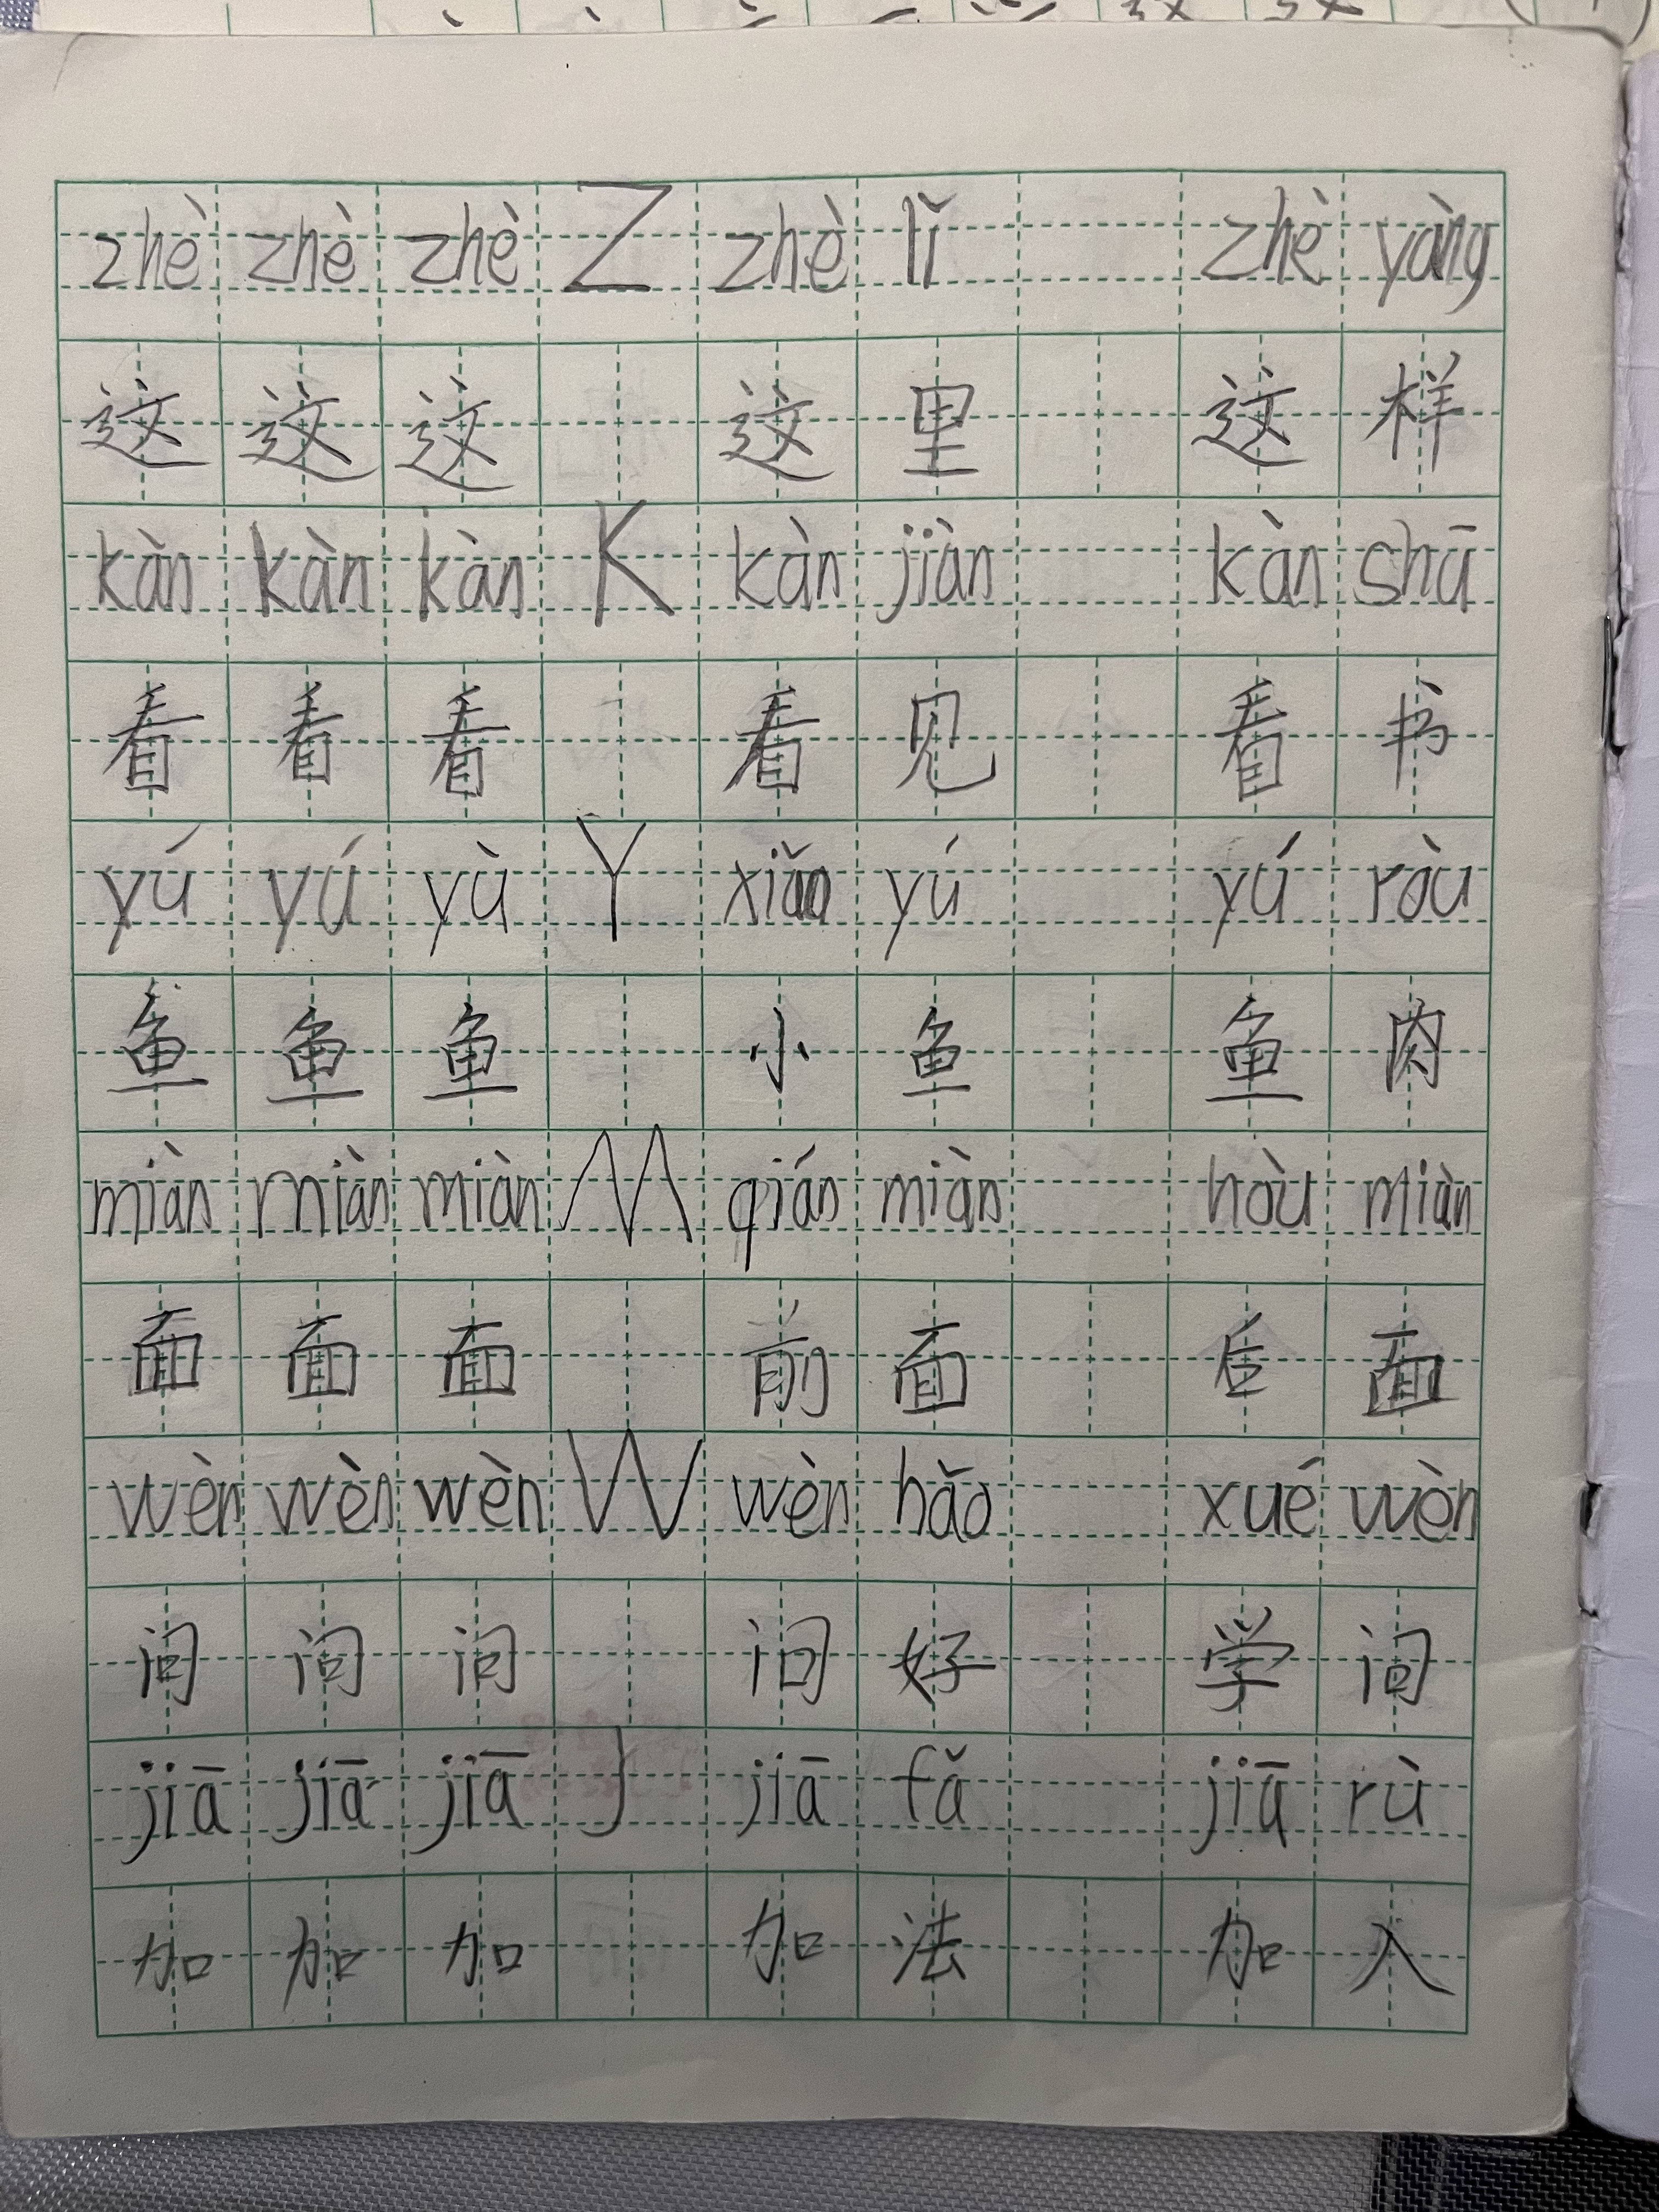 zhè zhè zhè Z zhè lǐ zhè yàng
这 这 这 这 里 这 样
kàn kàn kàn K kàn jiàn kàn shū
看 看 看 看 见 看 书
yú yú yù Y xiǎo yú yú ròu
鱼 鱼 鱼 小 鱼 鱼 肉
miàn miàn miàn M qián miàn hòu miàn
面 面 面 前 面 后 面
wèn wèn wèn W wèn hǎo xué wèn
问 问 问 问 好 学 问
jiā jiā jiā J jiā fǎ jiā rù
加 加 加 加 法 加 入